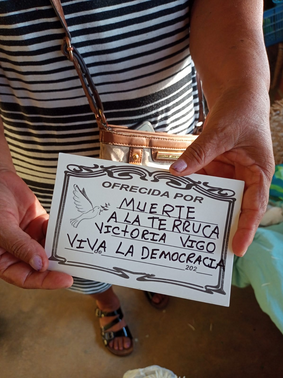 OFRECIDA POR
MUERTE
A LA TERRUCA
VICTORIA VIGO
VIVA LA DEMOCRACIA
202